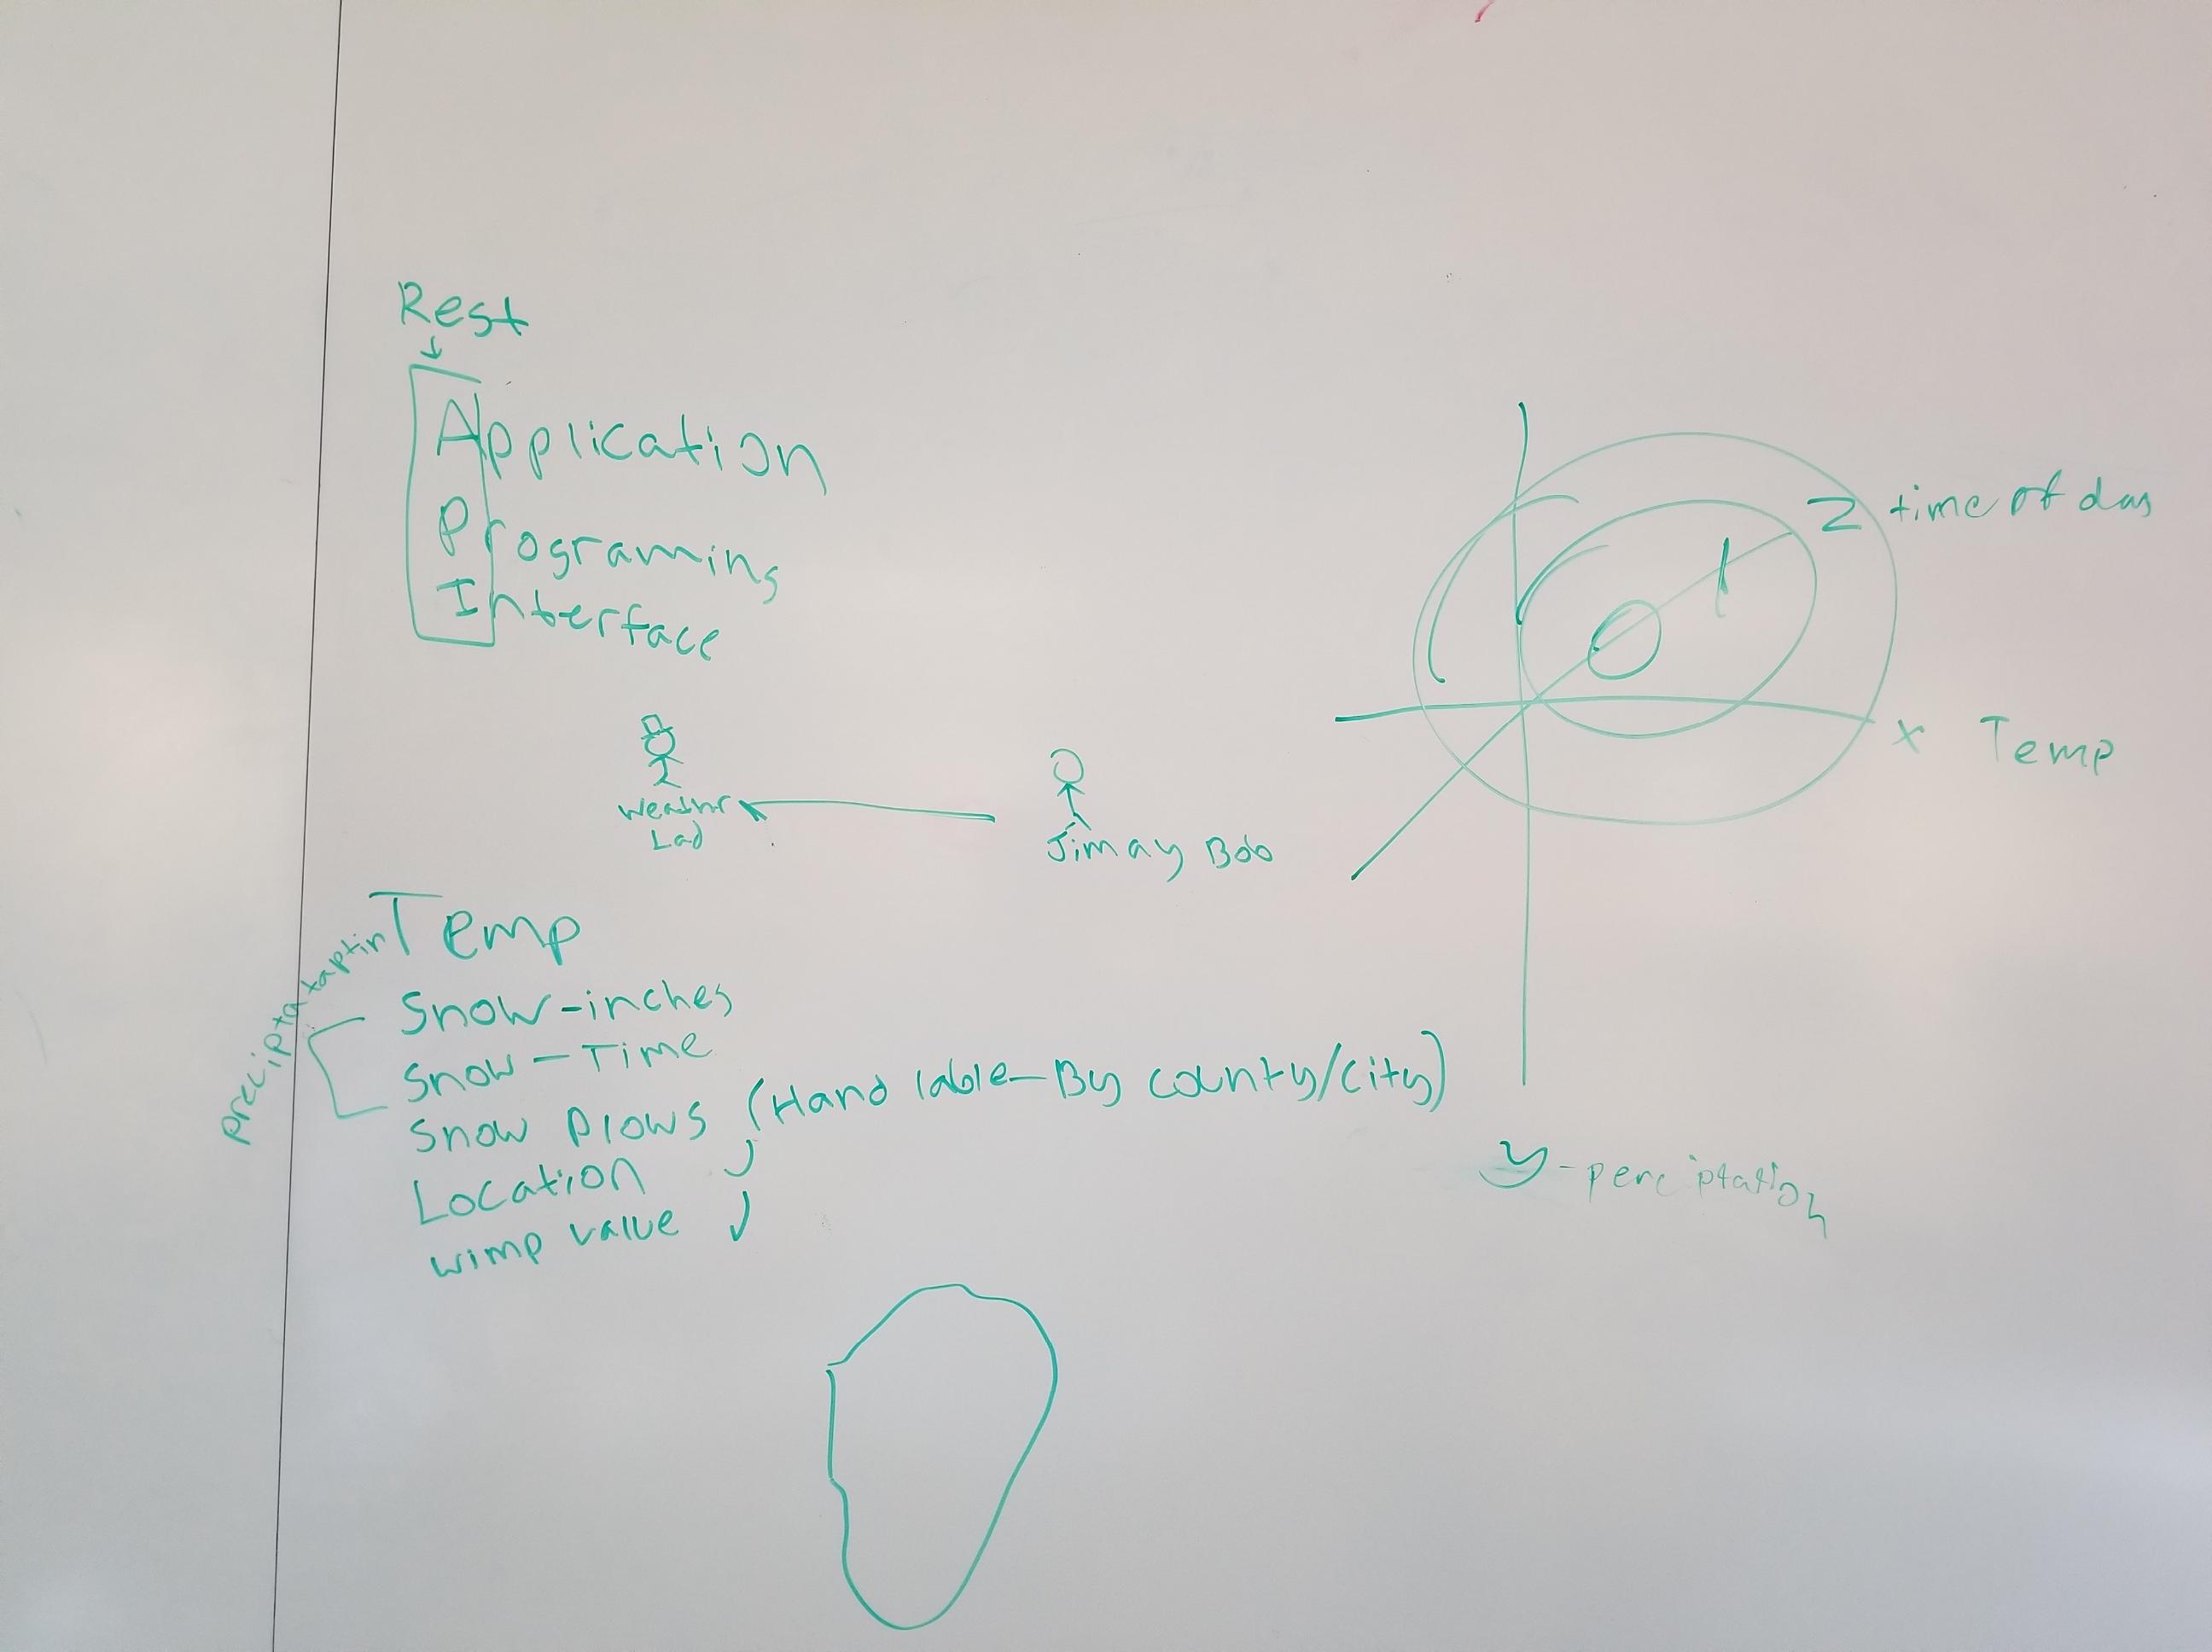 Rest
Application
Programing
Interface
Weathr
Lad
Jimay Bob
Temp
Snow-inches
Snow-Time
Snow Plows (Hand lable-By county/city)
Location
wimp value
Z time of day
x Temp
y-perciptation